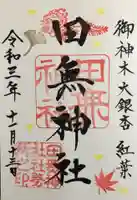 御神木大銀杏 紅葉
田無神社
令和三年十一月十三日
田無神社